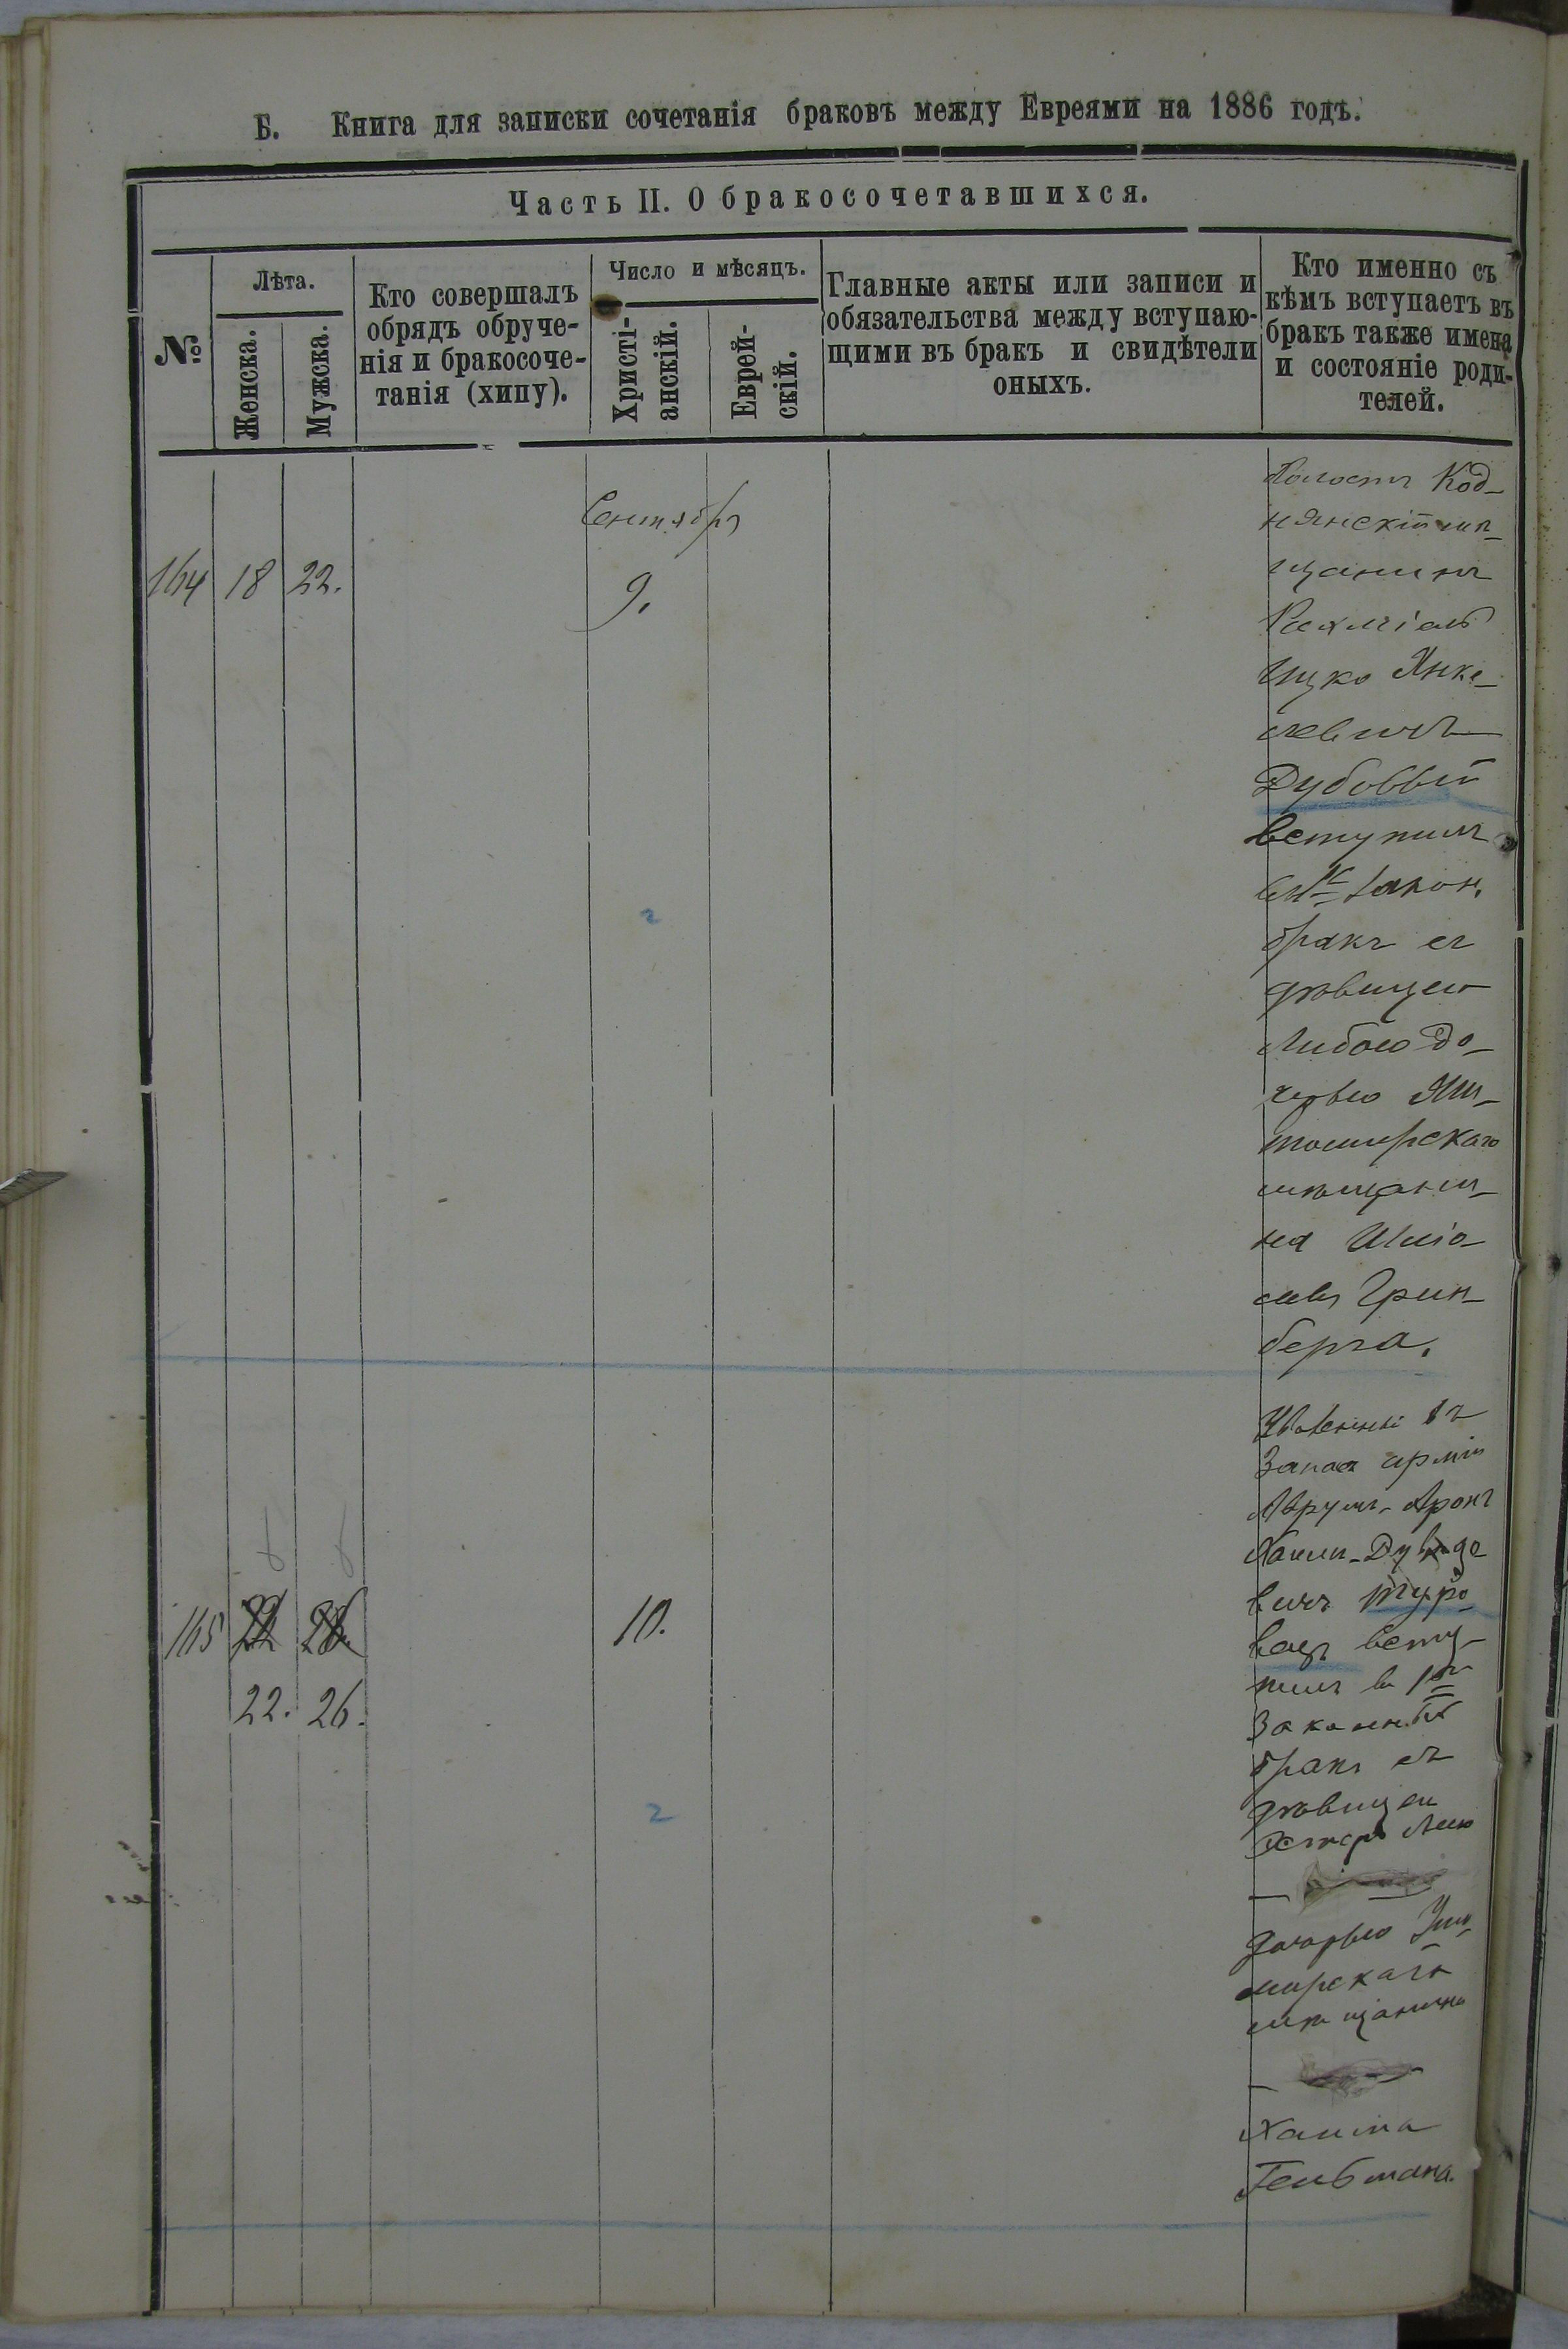 Б. Книга для записки сочетанія браковъ между Евреями на 1886 годъ.
Часть II. О бракосочетавшихся.
№
Лѣта.
Женска.
Мужска.
Кто совершалъ
обрядъ обруче-
нія и бракосоче-
танія (хипу).
Число и мѣсяцъ.
Христі-
анскій.
Еврей-
скій.
Главные акты или записи и
обязательства между вступаю-
щими въ бракъ и свидѣтели
оныхъ.
Кто именно съ
кѣмъ вступаетъ въ
бракъ также имена
и состояніе роди-
телей.
Сентябрь
164 18 22. 9.
Холостъ Код-
нянскій мѣ-
щанинъ
Рахміель
Ицко Янке-
левичъ
Дубовый
вступилъ
закон.
бракъ съ
дѣвицею
Либою до-
черью Жи-
томирскаго
мѣщани-
на Шліо-
мы Грин-
берга.
2
165 22 26. 10.
22. 26.
въ
Запас арміи
Аврумъ-Аронъ
Хаимъ-Ду
вичъ Туро-
вецъ всту-
пилъ въ 1й
Законный
бракъ съ
дѣвицею
Эстеръ Леею
2
дочерью
мирскаго
мѣщанина
Хаима
Гельбмана.